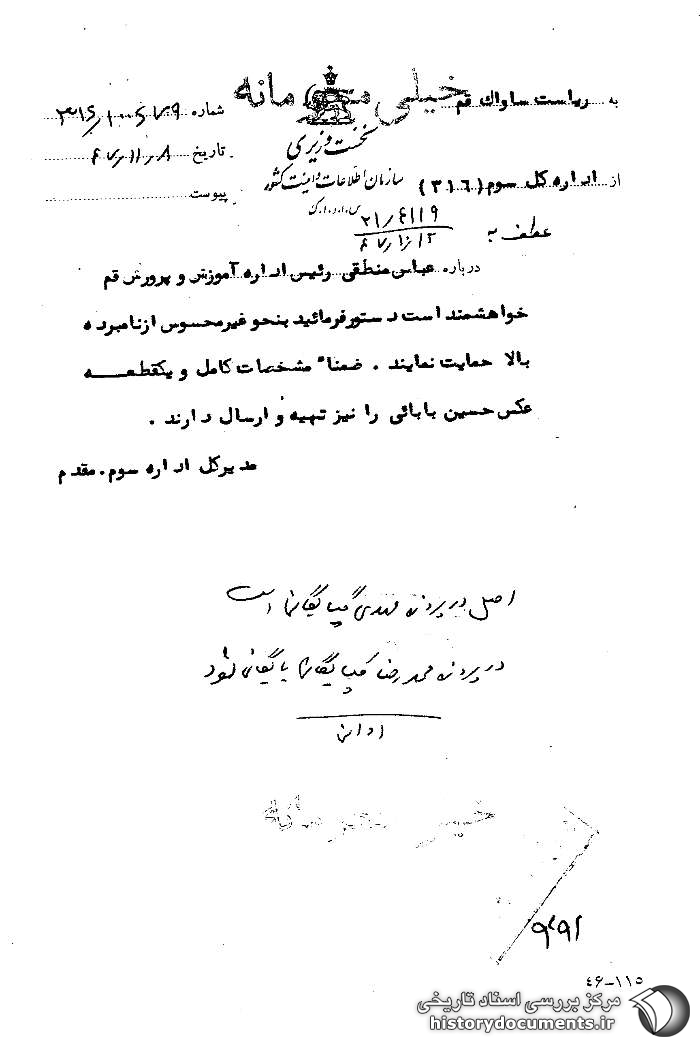 خیلی محرمانه
به ریاست ساواك قم
شماره ۳۱۶/
نخست وزیری
تاریخ ۴۷/۱۱/۸
از اداره کل سوم (۳۱۶)
سازمان اطلاعات و امنیت کشور
پیوست
س.ا.و.ا.ك
عطف به ۲۱/۶۱۱۹
۴۷/۱۰/۱۲
درباره عباس منطقی رئیس اداره آموزش و پرورش قم
خواهشمند است دستور فرمائید بنحو غیرمحسوس از نامبرده
بالا حمایت نمایند . ضمناً مشخصات کامل و یکقطعه
عکس حسین بابائی را نیز تهیه و ارسال دارند .
مدیرکل اداره سوم . مقدم
اصل در پرونده مهدی گلپایگانی است
در پرونده محمدرضا گلپایگانی بایگانی شود
خیلی محرمانه
۴۶-۱۱۵
مرکز بررسی اسناد تاریخی
historydocuments.ir